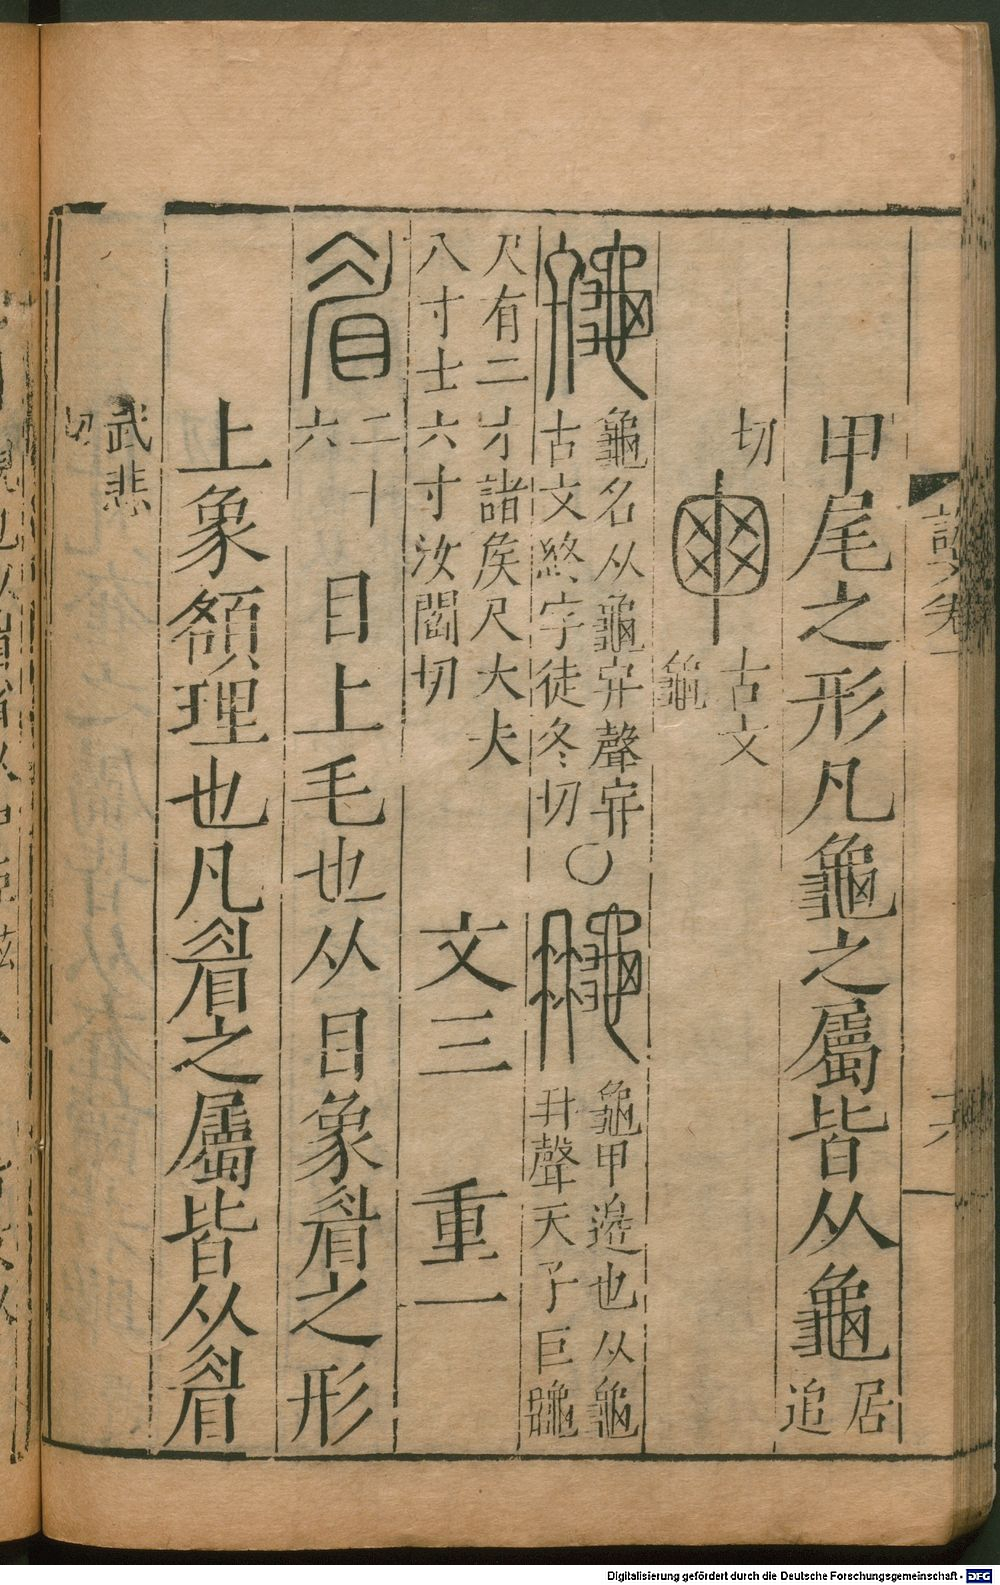 甲尾之形凡龜之屬皆从龜居追
切
古文
龜
龜名从龜𡨄聲𡨄
古文終字徒冬切〇
龜甲邉也从龜
冄聲天子巨䶫
尺有二寸諸矦尺大夫
八寸士六寸汝閻切
文三 重一
二十
六
目上毛也从目象眉之形
上象頟理也凡眉之屬皆从眉
武悲
切
Digitalisierung gefördert durch die Deutsche Forschungsgemeinschaft - DFG